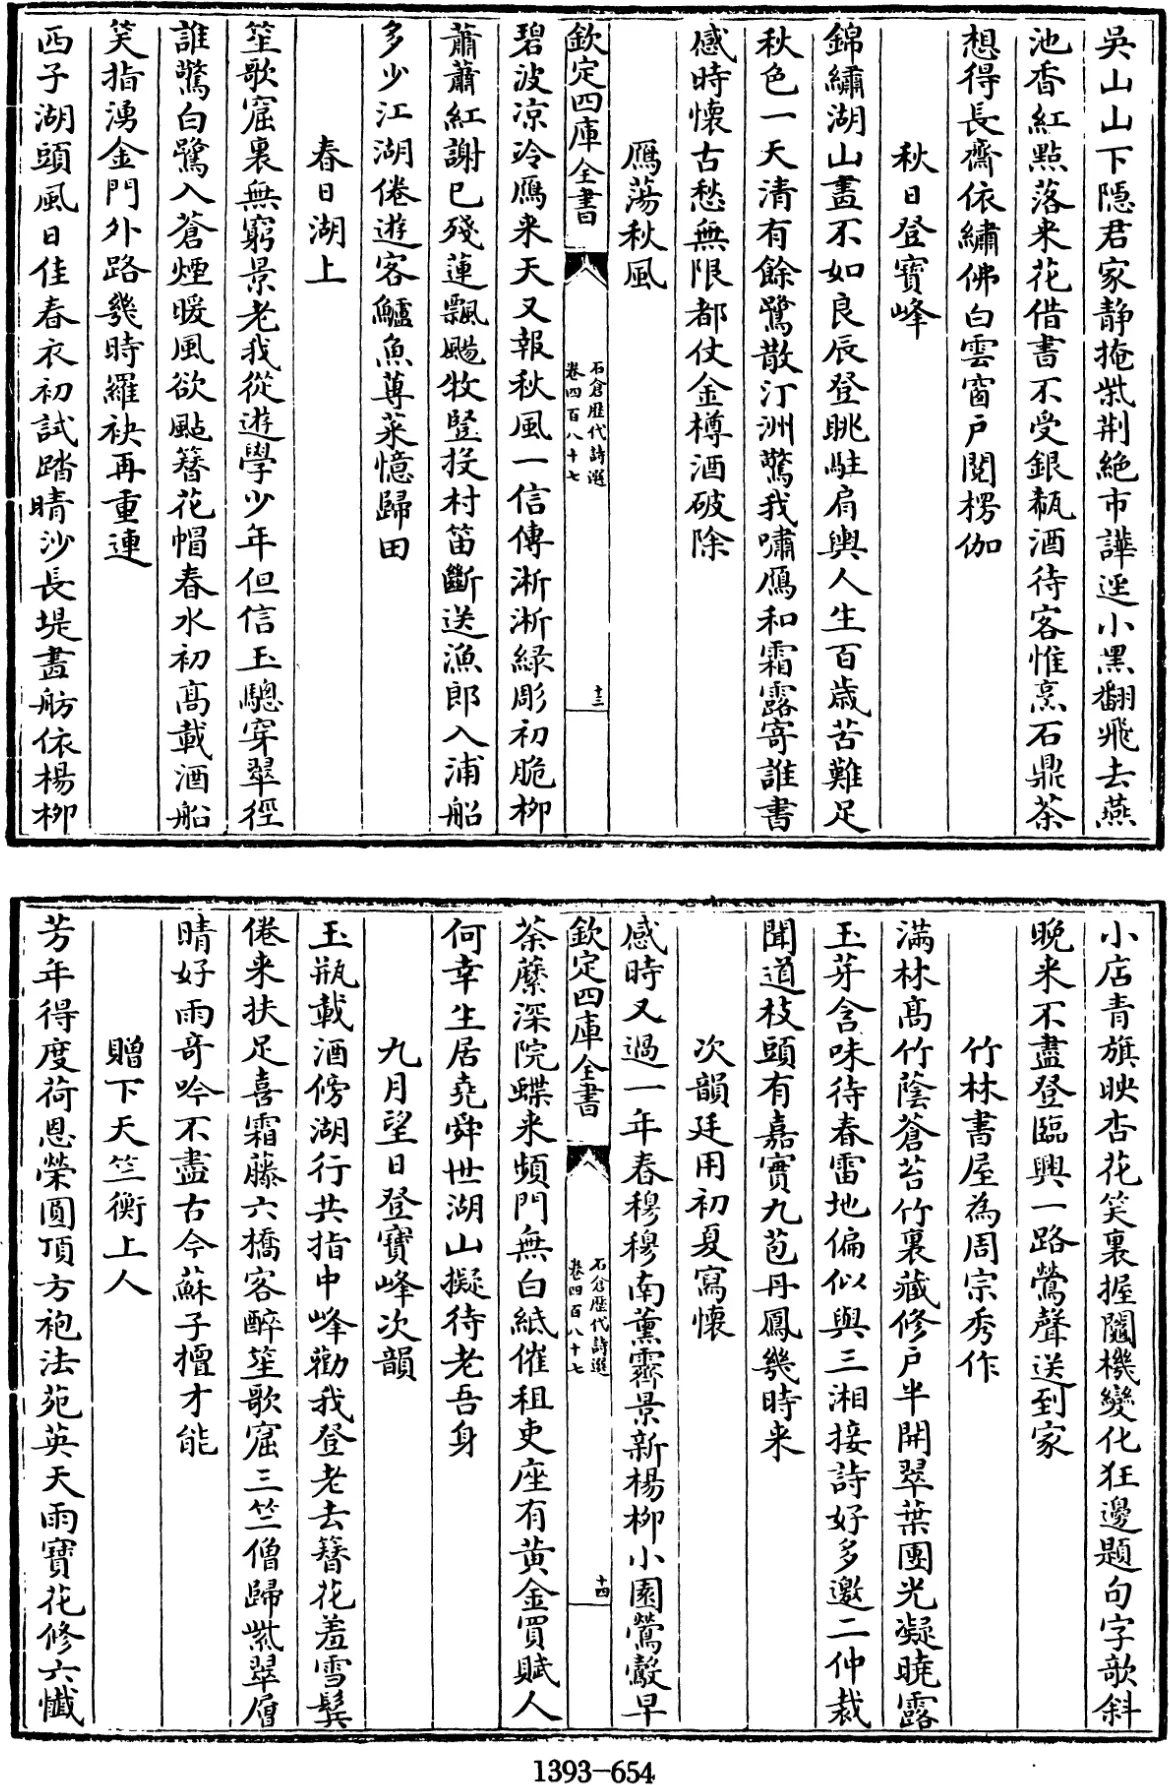 吳山山下隱君家静掩柴荆絶市譁逕小黑翻飛去燕
池香紅點落来花借書不受銀瓻酒待客惟烹石鼎茶
想得長齋依繡佛白雲窗户閲楞伽
秋日登寳峰
錦繡湖山畫不如良辰登眺駐肩輿人生百歳苦難足
秋色一天清有餘鷺散汀洲驚我嘯鴈和霜露寄誰書
感時懐古愁無限都仗金樽酒破除
鴈蕩秋風
欽定四庫全書
石倉歴代詩選
卷四百八十七
十三
碧波凉冷鴈来天又報秋風一信傳淅淅緑彫初脆柳
蕭蕭紅謝已殘蓮飄颺牧豎投村笛斷送漁郎入浦船
多少江湖倦遊客鱸魚蓴菜憶歸田
春日湖上
笙歌窟裏無窮景老我從遊學少年但信玉驄穿翠徑
誰驚白鷺入蒼煙暖風欲颭簪花帽春水初髙載酒船
笑指湧金門外路幾時羅袂再重連
西子湖頭風日佳春衣初試踏晴沙長堤畫舫依楊柳
小店青旗映杏花笑裏握鬮機變化狂邊題句字欹斜
晩来不盡登臨興一路鶯聲送到家
竹林書屋為周宗秀作
滿林髙竹蔭蒼苔竹裏藏修户半開翠葉團光凝曉露
玉芽含味待春雷地偏似與三湘接詩好多邀二仲裁
聞道枝頭有嘉實九苞丹鳳幾時来
次韻廷用初夏寫懐
感時又過一年春穆穆南薰霽景新楊柳小園鶯鷇早
欽定四庫全書
石倉歴代詩選
卷四百八十七
十四
荼蘼深院蝶来頻門無白紙催租吏座有黄金買賦人
何幸生居堯舜世湖山擬待老吾身
九月望日登寳峰次韻
玉瓶載酒傍湖行共指中峰勸我登老去簪花羞雪鬂
倦来扶足喜霜藤六橋客醉笙歌窟三竺僧歸紫翠層
晴好雨竒吟不盡古今蘇子擅才能
贈下天竺衡上人
芳年得度荷恩榮圓頂方袍法苑英天雨寳花修六懴
1393-654